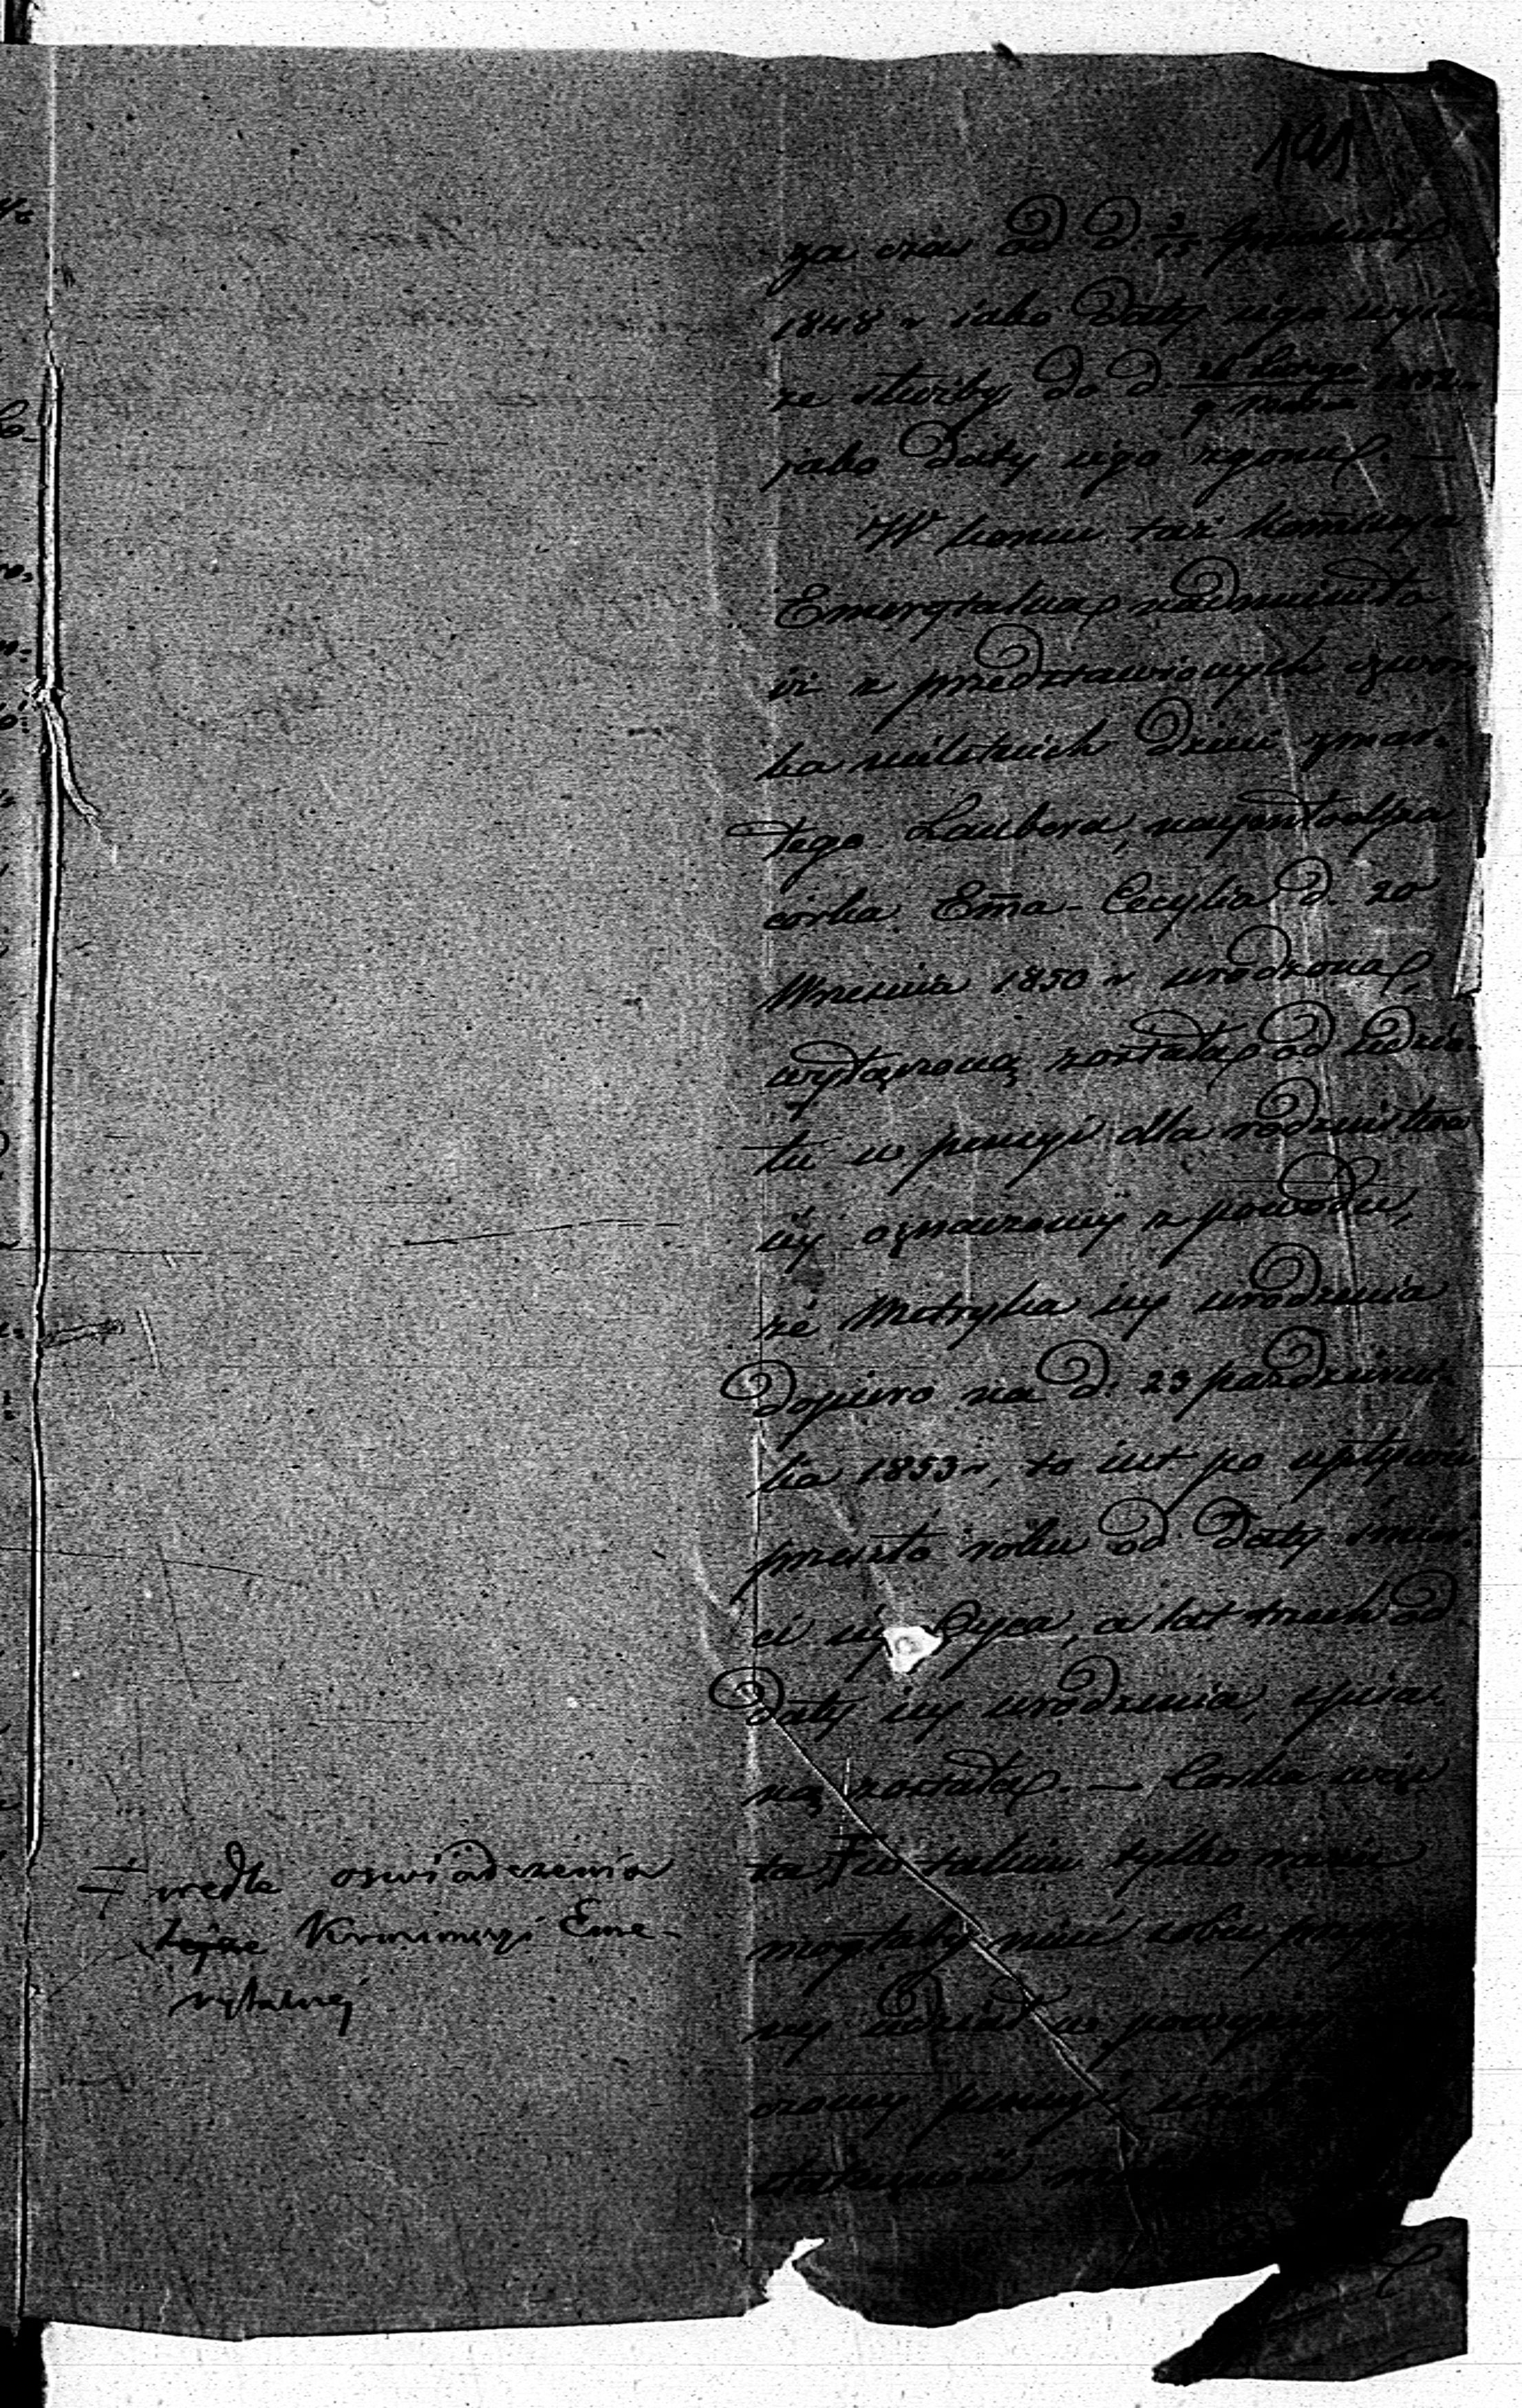 101
za czas od d. 3/15 Grudnia
1848 r iako daty iego wyiścia
ze służby do d. 26 Lutego/9 Marca 1852 r.
jako daty iego zgonu. —
W koncu taż Kom̃issya
Emerytalna nadmieniła,
iż z przedstawionych czwor-
ga nieletnich dzieci zmar-
łego Laubera, naymłodsza
córka Em̃a-Cecylia d. 20
Września 1850 r urodzona,
wyłączoną została od udzia-
łu w pensyi dla rodzeństwa
iéy oznaczonéy z powodu,
że Metryka iéy urodzenia
dopiero na d. 23 październi-
ka 1853 r, to iest po upływie
przeszło roku od daty śmier-
ci iéy Oyca, a lat trzech od
daty iéy urodzenia, spisa-
ną została. — Corka więc
ta, ‡ w takim tylko razie
mogłaby mieć sobie przyzna-
ny udział w powyższey
pensyi,
‡ wedle oswiadczenia
tejże Kommissyi Eme-
rytalnej